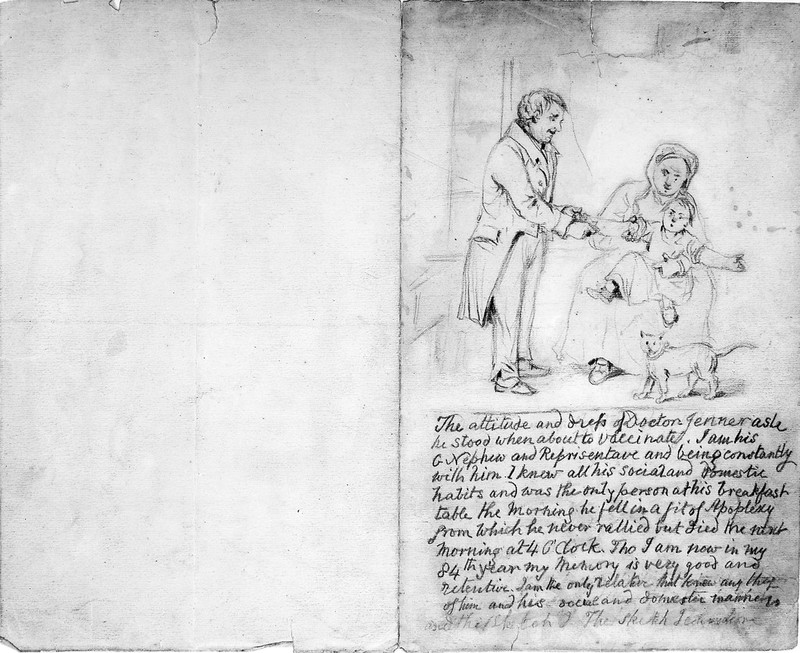 The attitude and dress of Doctor Jenner as
he stood when about to vaccinate. I am his
G Nephew and Representave and being constantly
with him. I knew all his social and domestic
habits and was the only person at his breakfast
table the Morning he fell in a fit of Apoplexy
from which he never rallied but died the next
Morning at 4 O'Clock. Tho I am now in my
84th year my Memory is very good and
retentive. I am the only relative that knew any thing
of him and his social and domestic manners
and the Sketch The sketch I